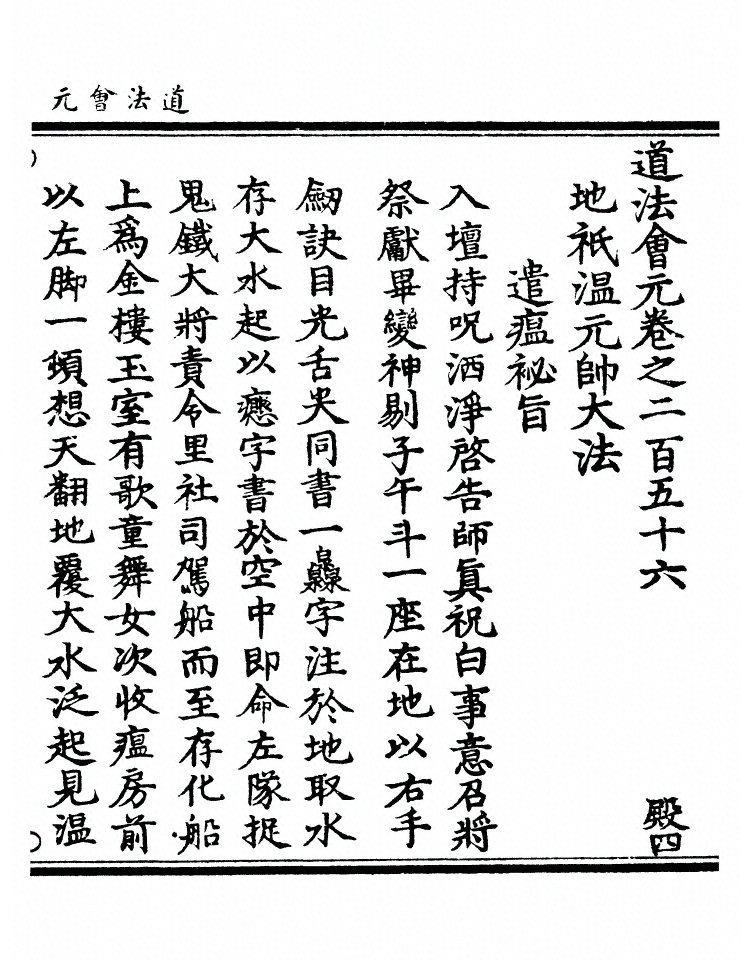 道法會元
道法會元卷之二百五十六 殿四
地祇温元帥大法
遣瘟祕旨
入壇持呪洒淨啓告師眞祝白事意召將
祭獻畢變神剔子午斗一座在地以右手
劒訣目光舌尖同書一灥字注於地取水
存大水起以字書於空中即命左隊捉
鬼鐵大將責令里社司駕船而至存化船
上爲金樓玉室有歌童舞女次收瘟房前
以左脚一傾想天翻地覆大水泛起見温